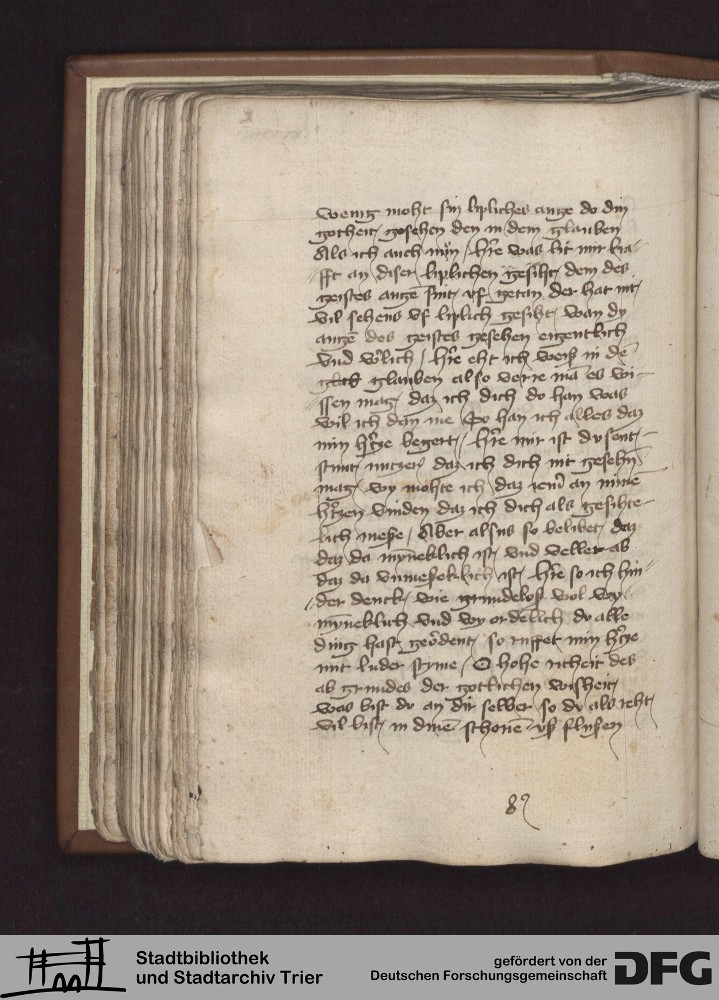 wenig moht sin lipliches auge do din
gotheit gesehen den in dem glauben
Als ich auch nün / hre was lit mir kra-
fft an diser liplichen gesiht dem des
geistes auge sint vf getan der hat nit
vil sehens vf liplich gesiht wan dy
auge des geistes gesehen eigentlich
vnd / hre eht ich weiß in de
glauben also verre ma es wi-
ssen mag daz ich dich do han was
wil ich dan me So han ich alles daz
min hrtze begert / hre mir ist dvsent-
stunt nutzer daz ich dich nit gesehn
mag wy mohte ich daz an mime
hrtzen vinden daz ich dich als gesihte-
lich / Aber alsus so belibet daz
daz da myneklich ist vnd vellet ab
daz da vnmeseklich ist / hre so ich hin-
der denck wie grundeloß wol wy
myneklich vnd wy ordelich du alle
ding hast geordent so ruffet min hrtze
mit luder styme / O hohe richeit des
ab grundes der gotlichen wisheit
was bist du an dir selber so du als reht
vil bist in dine schone vß flusen
89
Stadtbibliothek
und Stadtarchiv Trier
gefördert von der
Deutschen Forschungsgemeinschaft
DFG